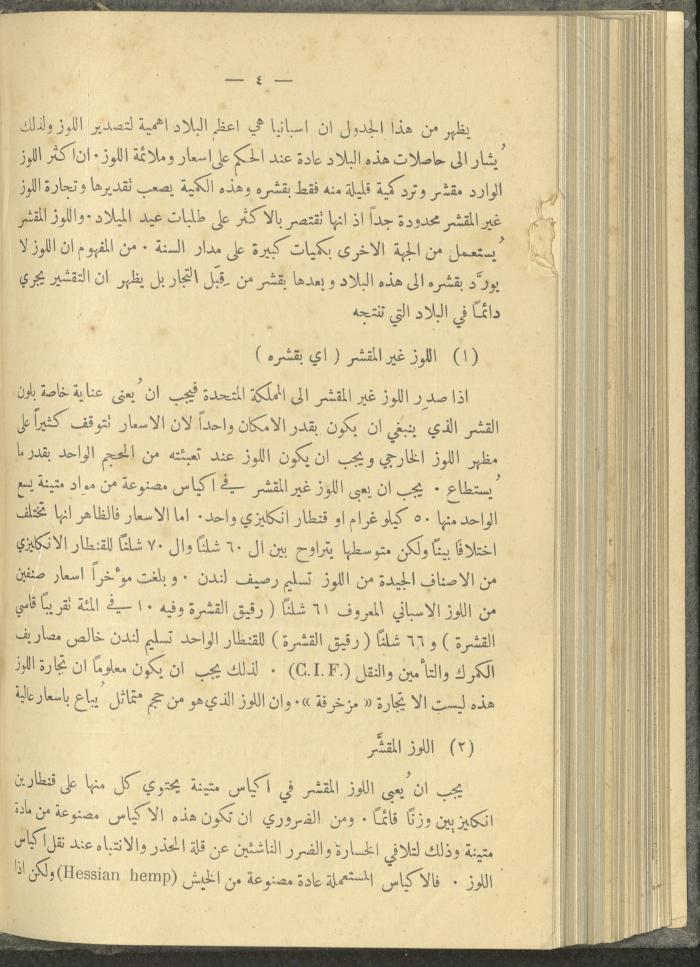 — ٤ —
يظهر من هذا الجدول ان اسبانيا هي اعظم البلاد اهمية لتصدير اللوز ولذلك
يُشار الى حاصلات هذه البلاد عادة عند الحكم على اسعار وملائمة اللوز . ان اكثر اللوز
الوارد مقشر وترد كمية قليلة منه فقط بقشره وهذه الكمية يصعب تقديرها وتجارة اللوز
غير المقشر محدودة جداً اذ انها تقتصر بالاكثر على طلبات عيد الميلاد . واللوز المقشر
يُستعمل من الجهة الاخرى بكميات كبيرة على مدار السنة . من المفهوم ان اللوز لا
يورَّد بقشره الى هذه البلاد وبعدها يقشر من قِبَل التجار بل يظهر ان التقشير يجري
دائماً في البلاد التي تنتجه
(١) اللوز غير المقشر ( اي بقشره )
اذا صدِر اللوز غير المقشر الى المملكة المتحدة فيجب ان يُعنى عناية خاصة بلون
القشر الذي ينبغي ان يكون بقدر الامكان واحداً لان الاسعار تتوقف كثيراً على
مظهر اللوز الخارجي ويجب ان يكون اللوز عند تعبئته من الحجم الواحد بقدر ما
يُستطاع . يجب ان يعبى اللوز غير المقشر في اكياس مصنوعة من مواد متينة يسع
الواحد منها ٥٠ كيلو غرام او قنطار انكليزي واحد . اما الاسعار فالظاهر انها تختلف
اختلافاً بيناً ولكن متوسطها يتراوح بين ال ٦٠ شلناً وال ٧٠ شلناً للقنطار الانكليزي
من الاصناف الجيدة من اللوز تسليم رصيف لندن . وبلغت مؤخراً اسعار صنفين
من اللوز الاسباني المعروف ٦١ شلناً ( رقيق القشرة وفيه ١٠ في المئة تقريباً قاسي
القشرة ) و ٦٦ شلناً ( رقيق القشرة ) للقنطار الواحد تسليم لندن خالص مصاريف
الكمرك والتأمين والنقل (C.I.F.) . لذلك يجب ان يكون معلوماً ان تجارة اللوز
هذه ليست الا تجارة « مزخرفة » . وان اللوز الذي هو من حجم متماثل يُباع باسعار عالية
(٢) اللوز المقشَّر
يجب ان يُعبى اللوز المقشر في اكياس متينة يحتوي كل منها على قنطارين
انكليزيين وزناً قائماً . ومن الضروري ان تكون هذه الاكياس مصنوعة من مادة
متينة وذلك لتلافي الخسارة والضرر الناشئين عن قلة الحذر والانتباه عند نقل اكياس
اللوز . فالاكياس المستعملة عادة مصنوعة من الخيش (Hessian hemp) ولكن اذا